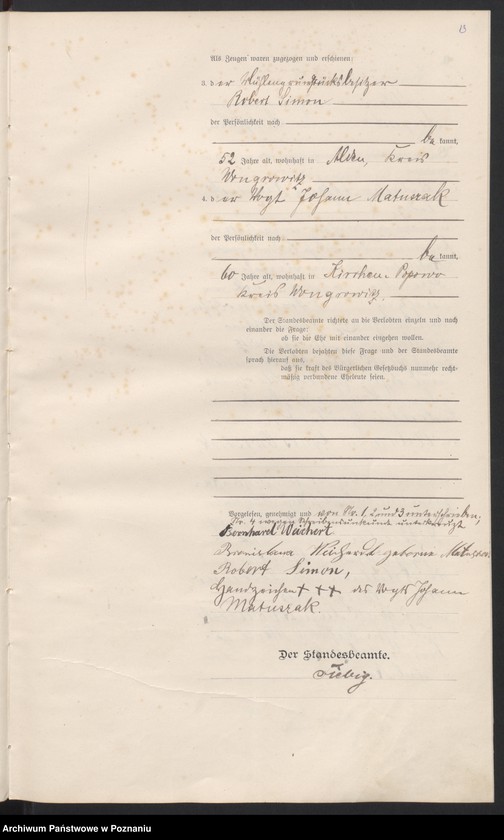 13
Als Zeugen waren zugezogen und erschienen:
3. der Mühlengrundstücksbesitzer
Robert Simon
der Persönlichkeit nach
be kannt,
52 Jahre alt, wohnhaft in Kreis
Wongrowitz
4. der Vogt Johann Matuszak
der Persönlichkeit nach
be kannt,
60 Jahre alt, wohnhaft in Kirchen Popowo
Kreis Wongrowitz.
Der Standesbeamte richtete an die Verlobten einzeln und nach
einander die Frage:
ob sie die Ehe mit einander eingehen wollen.
Die Verlobten bejahten diese Frage und der Standesbeamte
sprach hierauf aus,
daß sie kraft des Bürgerlichen Gesetzbuchs nunmehr recht-
mäßig verbundene Eheleute seien.
Vorgelesen, genehmigt und von Nr. 1, 2 und 3 unterschrieben,
Nr. 4 wegen Schreibensunkunde unterkreuzt
Bernhard Weichert
Bronislawa Weichert geborne Matuszak
Robert Simon,
Handzeichen + + + des Vogts Johann
Matuszak.
Der Standesbeamte.
Liebig.
Archiwum Państwowe w Poznaniu